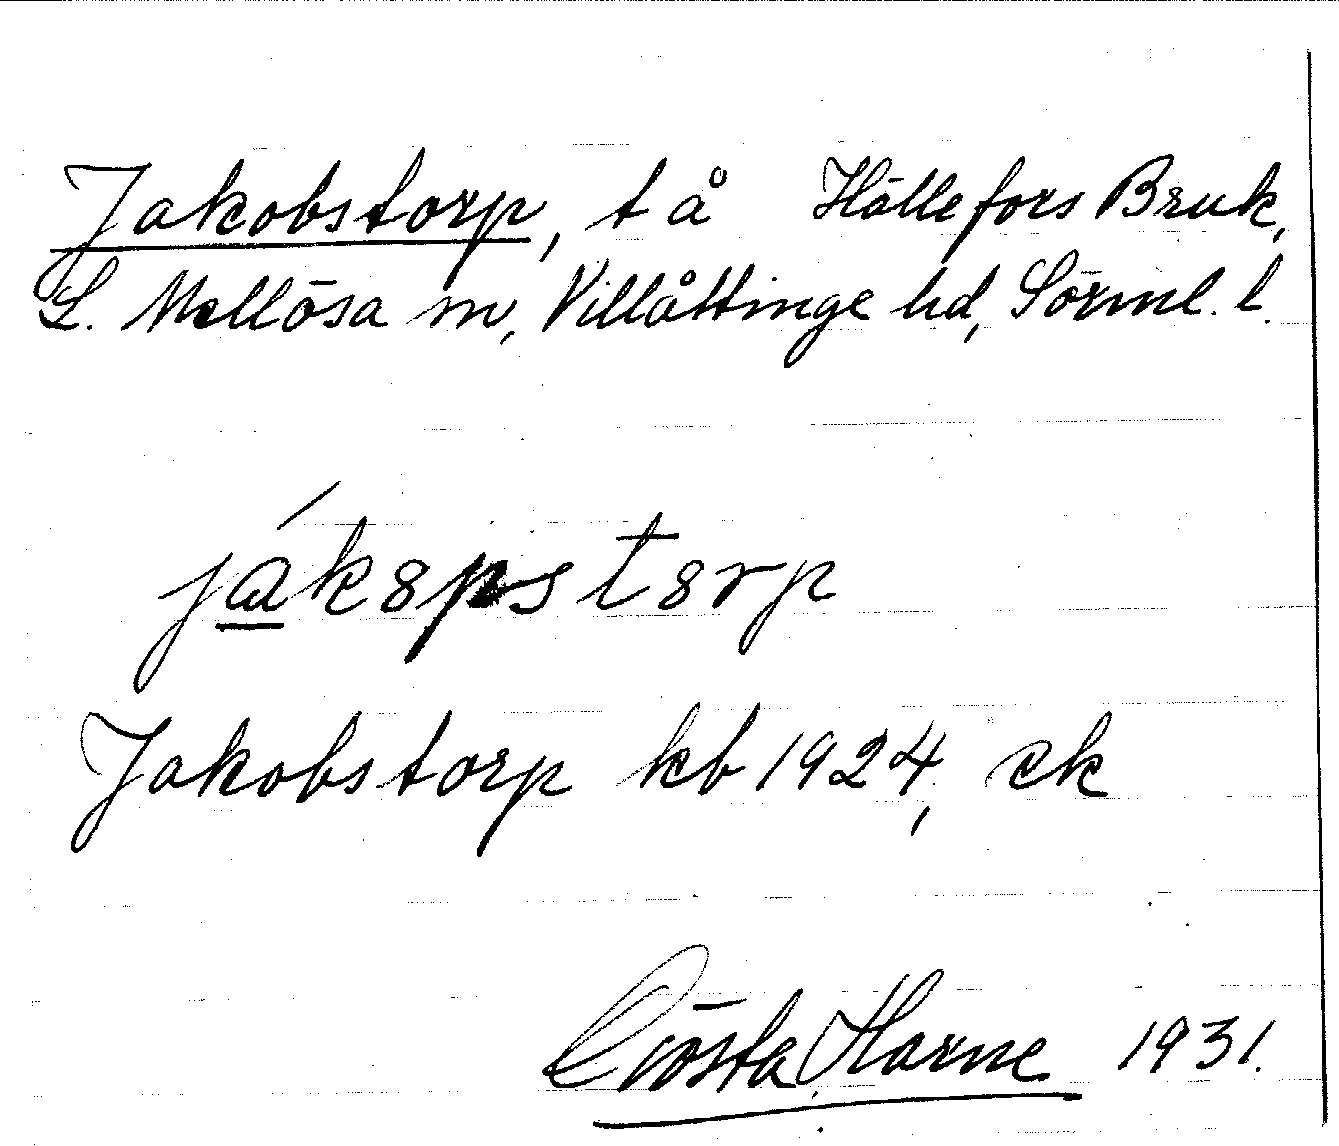 Jakobstorp, t å Hällefors Bruk,
L. Mellösa sn, Villåttinge hd, Sörml. l.
jákɑpstɑrp
Jakobstorp kb 1924, ek
Gösta Harne 1931.